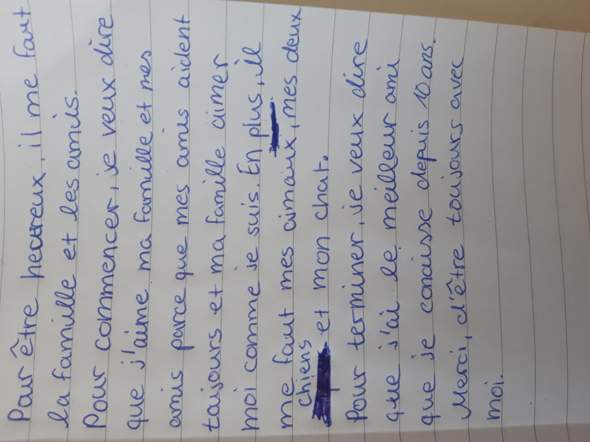 Pour être heureux, il me faut
la famille et les amis.
Pour commencer, je veux dire
que j'aime ma famille et mes
amis parce que mes amis aident
toujours et ma famille aimer
moi comme je suis. En plus, il
me faut mes aimaux, mes deux
chiens et mon chat.
Pour terminer, je veux dire
que j'ai le meilleur ami
que je conaisse depuis 10 ans.
Merci, d'être toujours avec
moi.